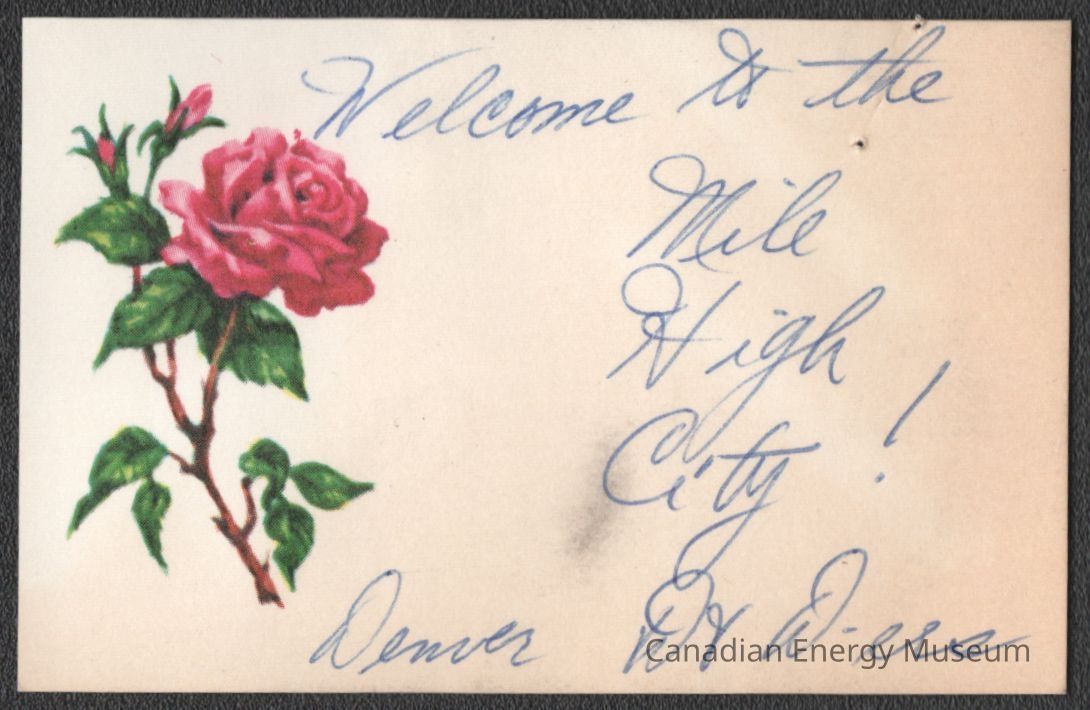 Welcome to the
Mile
High
City!
Denver
Canadian Energy Museum